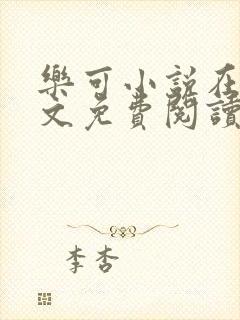 樂可小說在
文免費閱讀
李杏